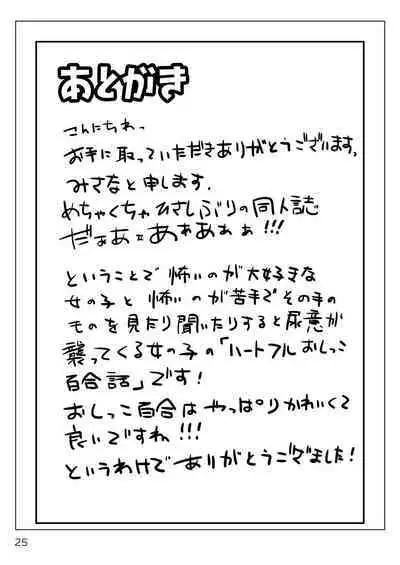 あとがき
こんにちわっ
お手に取っていただきありがとうございます。
みさなと申します。
めちゃくちゃひさしぶりの同人誌
だぁあぁあぁあぁぁ!!!
ということで怖いのが大好きな
女の子と怖いのが苦手でその手の
ものを見たり聞いたりすると尿意が
襲ってくる女の子の「ハートフルおしっこ
百合話」です!
おしっこ百合はやっぱりかわいくて
良いですね!!!
というわけでありがとうございました!
25